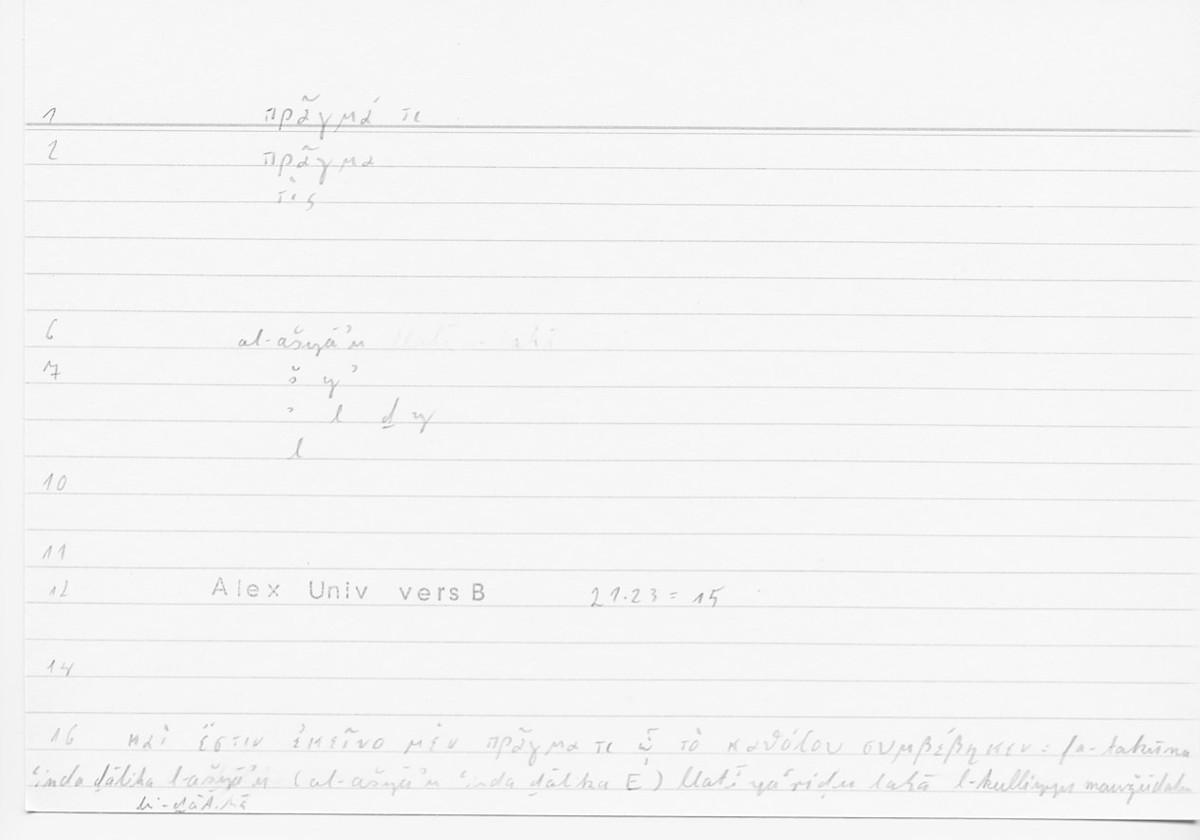 1 πρᾶγμά τι
2 πρᾶγμα
τὶς
6 al-ašyāʾu
7 š y ʾ
ʾ l ḏ y
l
10
11
12 Alex Univ vers B 21.23 = 15
14
16 καὶ ἔστιν ἐκεῖνο μὲν πρᾶγμα τι ᾧ τὸ καθόλου συμβέβηκεν: fa-takūna
ʿinda ḏālika l-ašyāʾu (al-ašyāʾu ʿinda ḏālika E) llatī yaʿriḍu lahā l-kullīyu mawǧūdatan
bi-ḏātihā